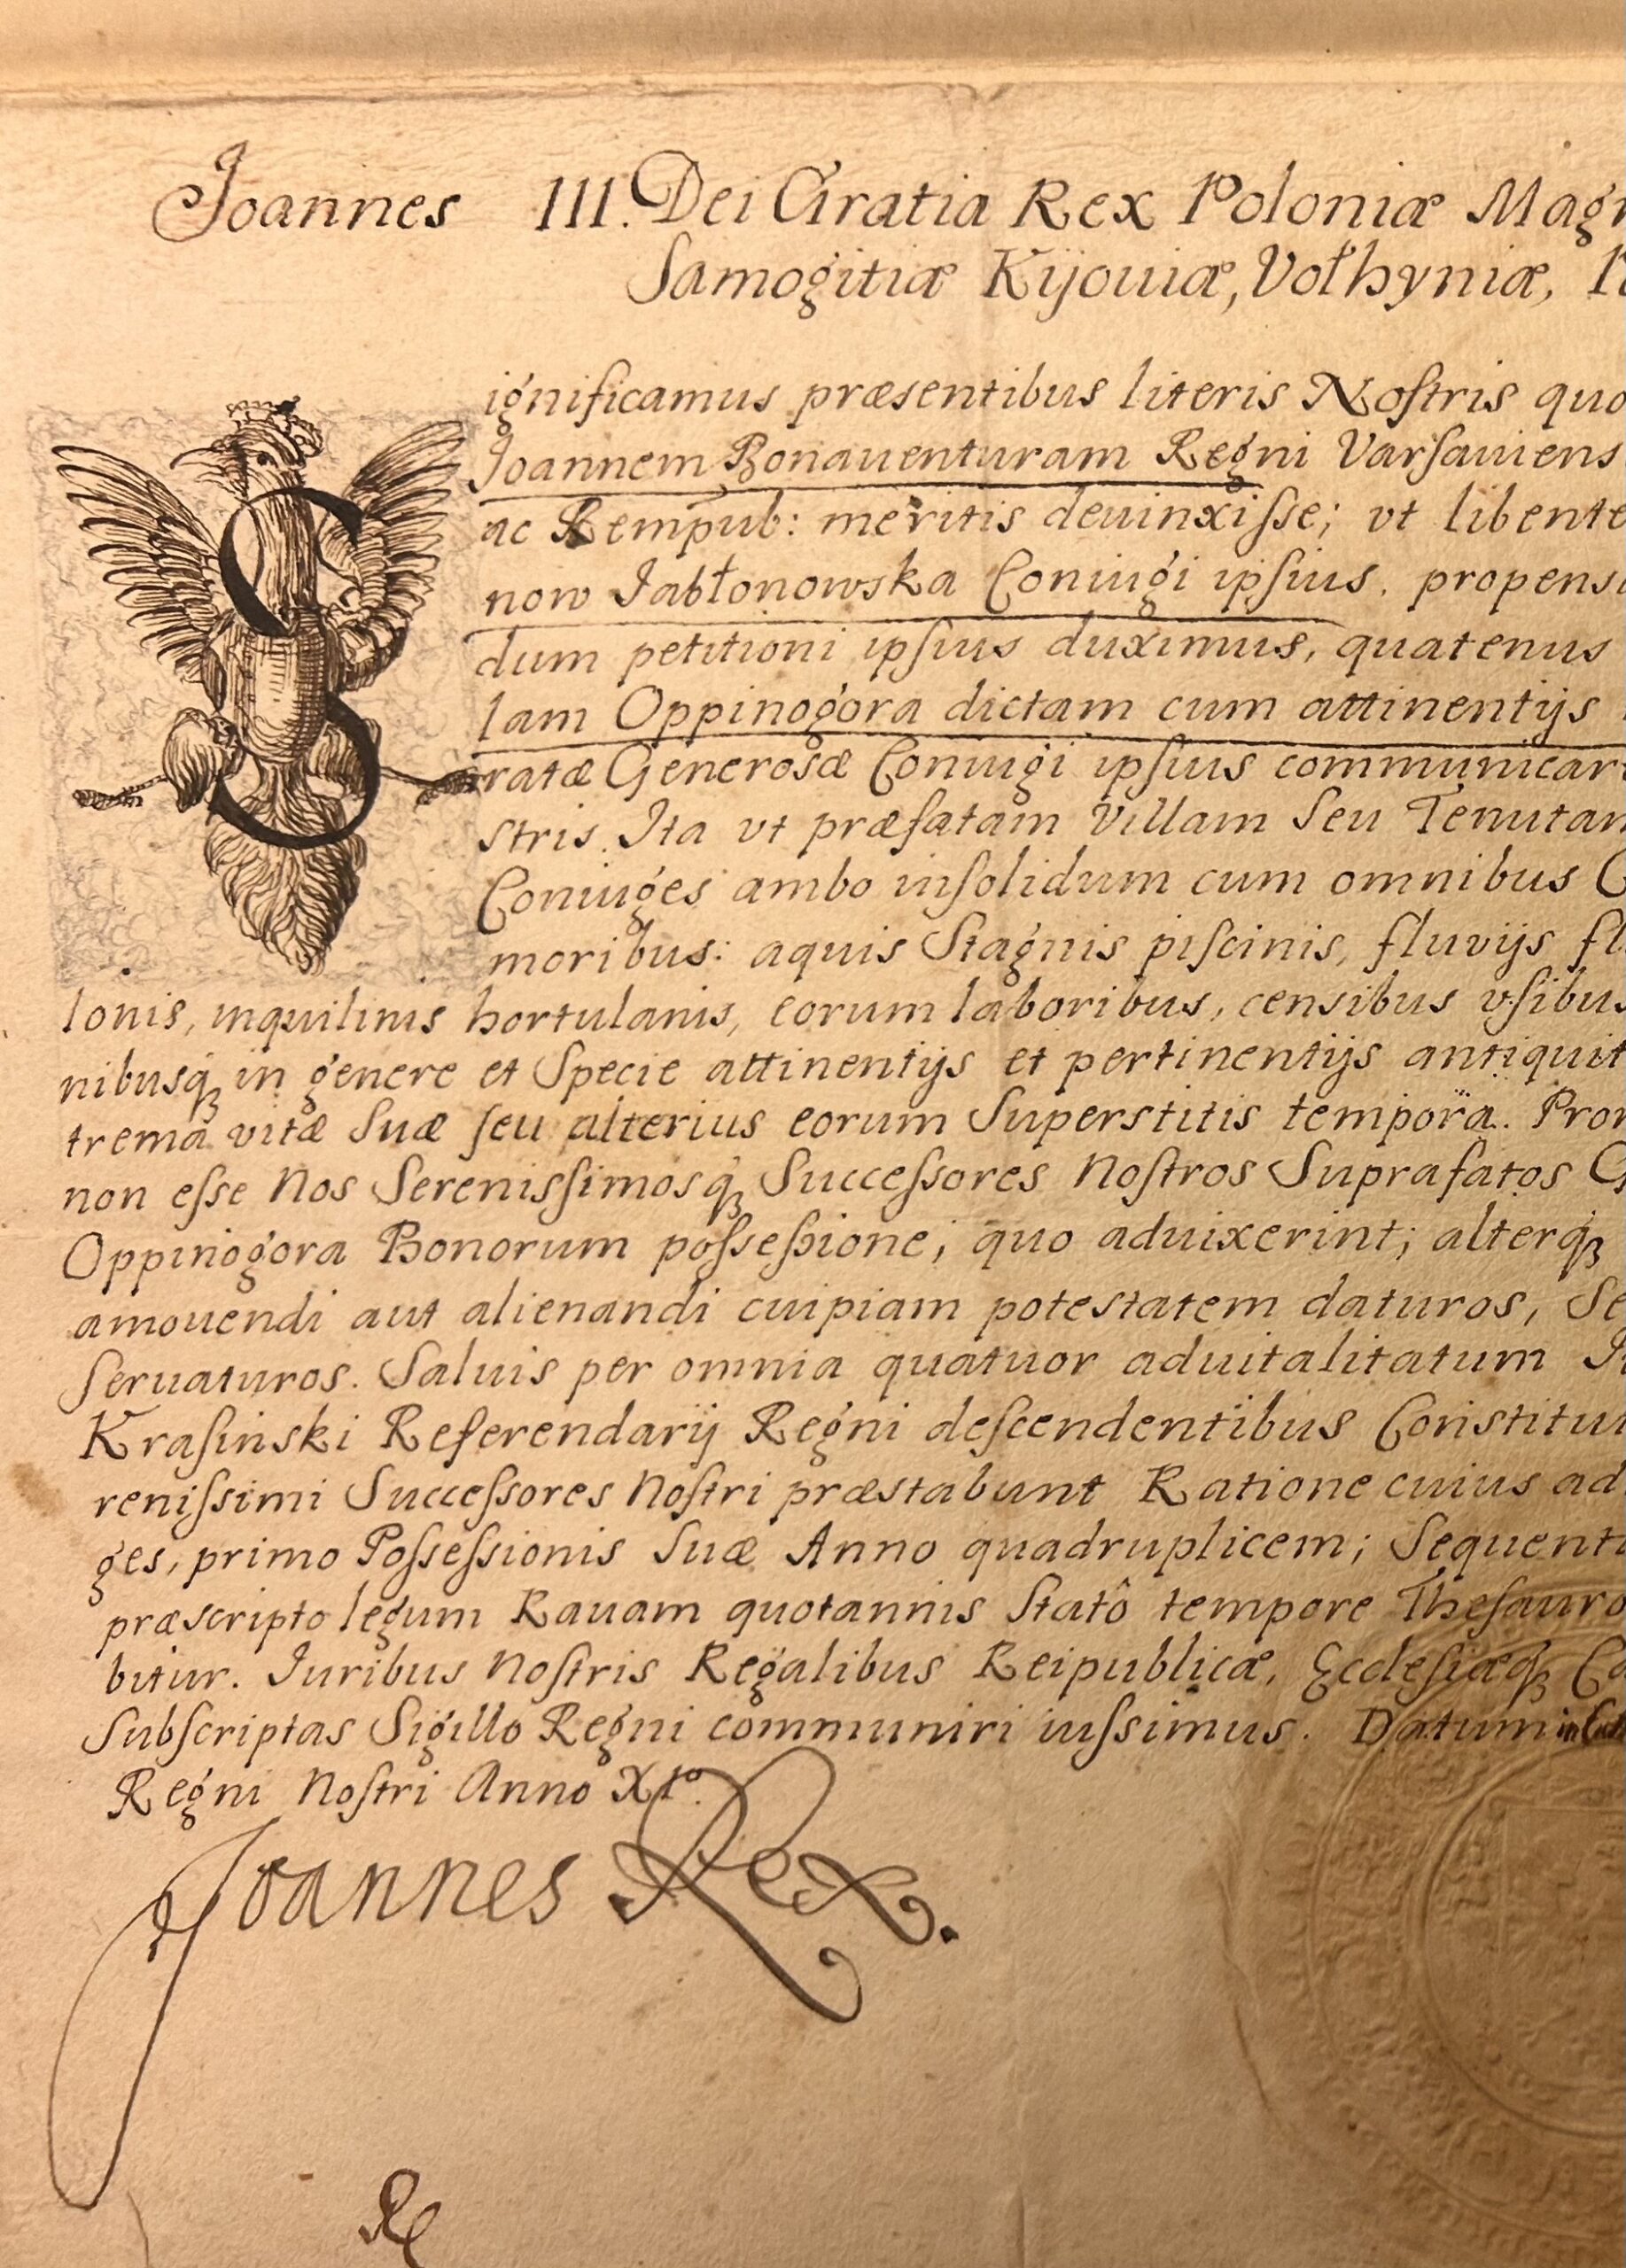 Joannes III. Dei Gratia Rex Poloniæ Mag
Samogitiæ Kijouiæ, Vołhyniæ,
Significamus præsentibus literis Nostris quo
Joannem Bonauenturam Regni Varsauiens
ac Rempub: meritis deuinxisse; vt libente
now Jabłonowska Coniugi ipsius, propens
dum petitioni ipsius duximus, quatenus
lam Oppinogora dictam cum attinentijs
ratæ Generosæ Coniugi ipsius communicar
stris. Ita vt præfatam Villam seu Tenutam
Coniuges ambo insolidum cum omnibus
moribus: aquis Stagnis piscinis, fluvijs fl
lonis, inquilinis hortulanis, eorum laboribus, censibus vsibus
nibusq₃ in genere et Specie attinentijs et pertinentijs antiquit
trema vitæ Suæ seu alterius eorum Superstitis tempora. Pro
non esse Nos Serenissimosq₃ Successores Nostros Suprafatos
Oppinogora Bonorum possessione, quo aduixerint; alterq₃
amouendi aut alienandi cuipiam potestatem daturos, Se
seruaturos. Saluis per omnia quatuor aduitalitatum
Krasinski Referendarij Regni descendentibus Constitu
renissimi Successores Nostri præstabunt Ratione cuius ad
ges, primo Possessionis Suæ Anno quadruplicem; Sequenti
præscripto legum Rauam quotannis Statô tempore Thesauro
bitur. Iuribus Nostris Regalibus Reipublicæ, Ecclesiæq₃ Ca
Subscriptas Sigillo Regni communiri iussimus. Datum in
Regni Nostri Anno XIº.
Joannes Rex.